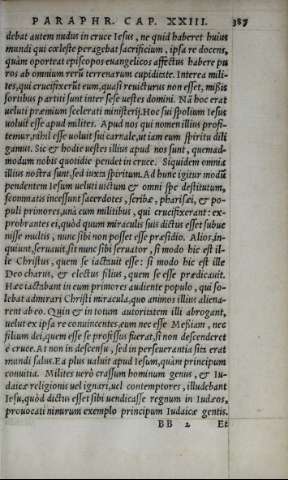 PARAPHR. CAP. XXIII. 387
debat autem nudus in cruce Iesus, ne quid haberet huius
mundi qui cœleste peragebat sacrificium, ipsa re docens,
quàm oporteat episcopos euangelicos affectus habere pu
ros ab omnium rerũ terrenarum cupiditate. Interea mili-
tes, qui crucifixerũt eum, quasi reuicturus non esset, missis
sortibus partiti sunt inter sese uestes domini. Nã hoc erat
ueluti præmium scelerati ministerij. Hoc sui spolium Iesus
uoluit esse apud milites. Apud nos qui nomen illius profi-
temur, nihil esse uoluit sui carnale, ut iam eum spiritu dili
gamus. Sic & hodie uestes illius apud nos sunt, quemad-
modum nobis quotidie pendet in cruce. Siquidem omnia
illius nostra sunt, sed iuxta spiritum. Ad hunc igitur modũ
pendentem Iesum ueluti uictum & omni spe destitutum,
sconmatis incessunt sacerdotes, scribæ, pharisæi, & po-
puli primores, unà cum militibus, qui crucifixerant: ex-
probrantes ei, quòd quum miraculis suis dictus esset subue
nisse multis, nunc sibi non posset esse præsidio. Alios, in-
quiunt, seruauit, sit nunc sibi seruator, si modo hic est il-
le Christus, quem se iactauit esse: si modo hic est ille
Deo charus, & electus filius, quem se esse prædicauit.
Hæc iactabant in eum primores audiente populo, qui so-
lebat admirari Christi miracula, quo animos illius aliena-
rent ab eo. Quin & in totum autoritatem illi abrogant,
uelut ex ipsa re conuincentes, eum nec esse Messiam, nec
filium dei, quem esse se professus fuerat, si non descenderet
è cruce. At non in descensu, sed in perseuerantia sita erat
mundi salus. Et a plus ualuit apud Iesum, quàm principum
conuitia. Milites uerò crassum hominum genus, & Iu-
daicæ religionis uel ignari, uel contemptores, illudebant
Iesu, quòd dictus esset sibi uendicasse regnum in Iudæos,
prouocati nimirum exemplo principum Iudaicæ gentis.
BB 2 Et